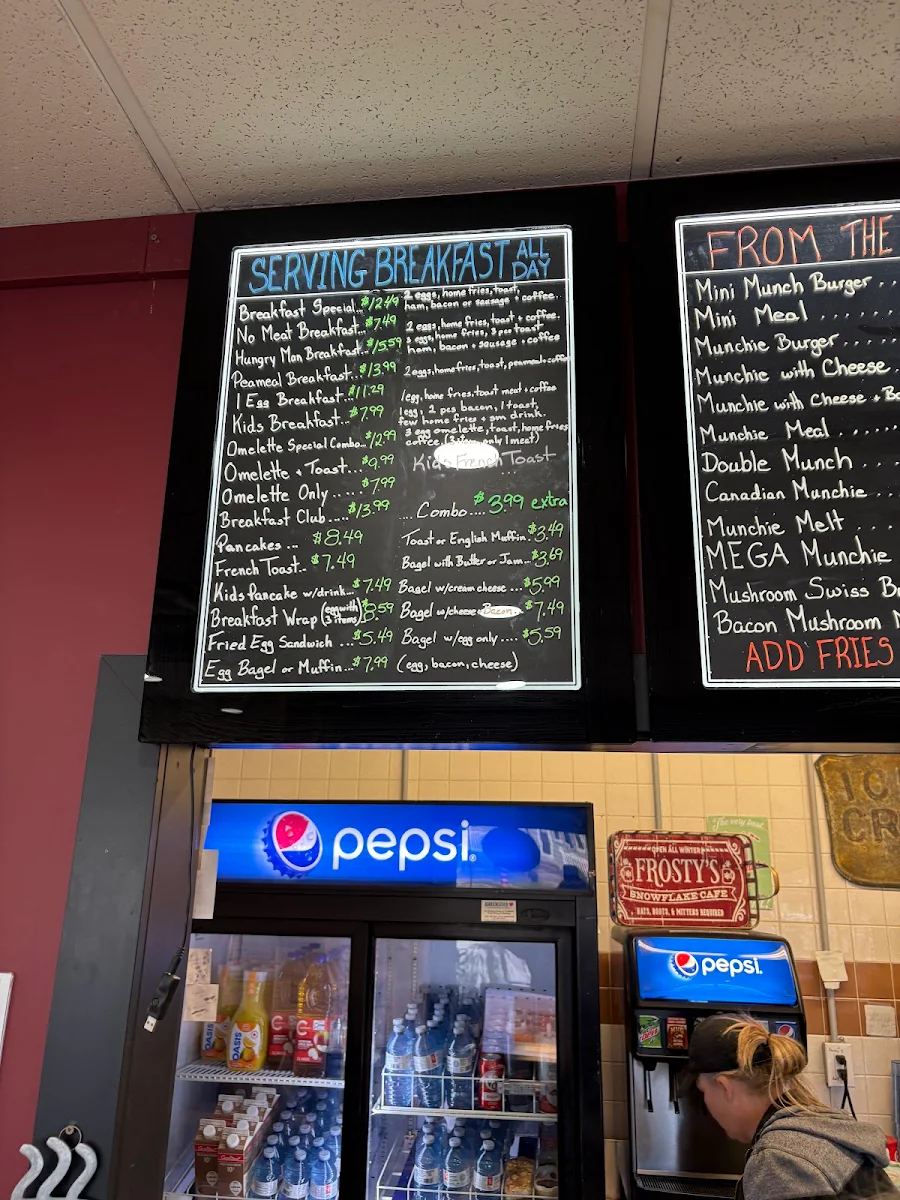 SERVING BREAKFAST ALL DAY
Breakfast Special.. $12.49 2 eggs, home fries, toast, ham, bacon or sausage + coffee..
No Meat Breakfast.. $7.49 2 eggs, home fries, toast + coffee.
Hungry Man Breakfast.. $15.59 3 eggs, home fries, 3 pcs toast ham, bacon + sausage + coffee
Peameal Breakfast.. $13.99 2 eggs, home fries, toast, peameal + coffee
1 Egg Breakfast.. $11.29 1 egg, home fries, toast meat + coffee
Kids Breakfast.. $7.99 1 egg, 2 pcs bacon, 1 toast, few home fries + sm drink.
Omelette Special Combo.. $12.99 3 egg omelette, toast, home fries coffee, only 1 meat)
Omelette + Toast... $9.99 Kids French Toast
Omelette Only ..... $7.99
Breakfast Club..... $13.99 .... Combo.... $3.99 extra
Pancakes ... $8.49 Toast or English Muffin.. $3.49
French Toast.. $7.49 Bagel with Butter or Jam... $3.69
Kids Pancake w/drink.. $7.49 Bagel w/cream cheese ... $5.99
Breakfast Wrap (egg with 3 items) .59 Bagel w/cheese + Bacon. $7.49
Fried Egg Sandwich .. $5.49 Bagel w/egg only .... $5.59
Egg Bagel or Muffin... $7.99 (egg, bacon, cheese)
FROM THE
Mini Munch Burger ....
Mini Meal ......
Munchie Burger .....
Munchie with Cheese .
Munchie with Cheese +
Munchie Meal .....
Double Munch ...
Canadian Munchie ...
Munchie Melt ....
MEGA Munchie
Mushroom Swiss
Bacon Mushroom
ADD FRIES
pepsi
OPEN ALL WINTER
FROSTY'S
SNOWFLAKE CAFE
HATS, BOOTS, & MITTENS REQUIRED
"The very best"
pepsi
OASIS